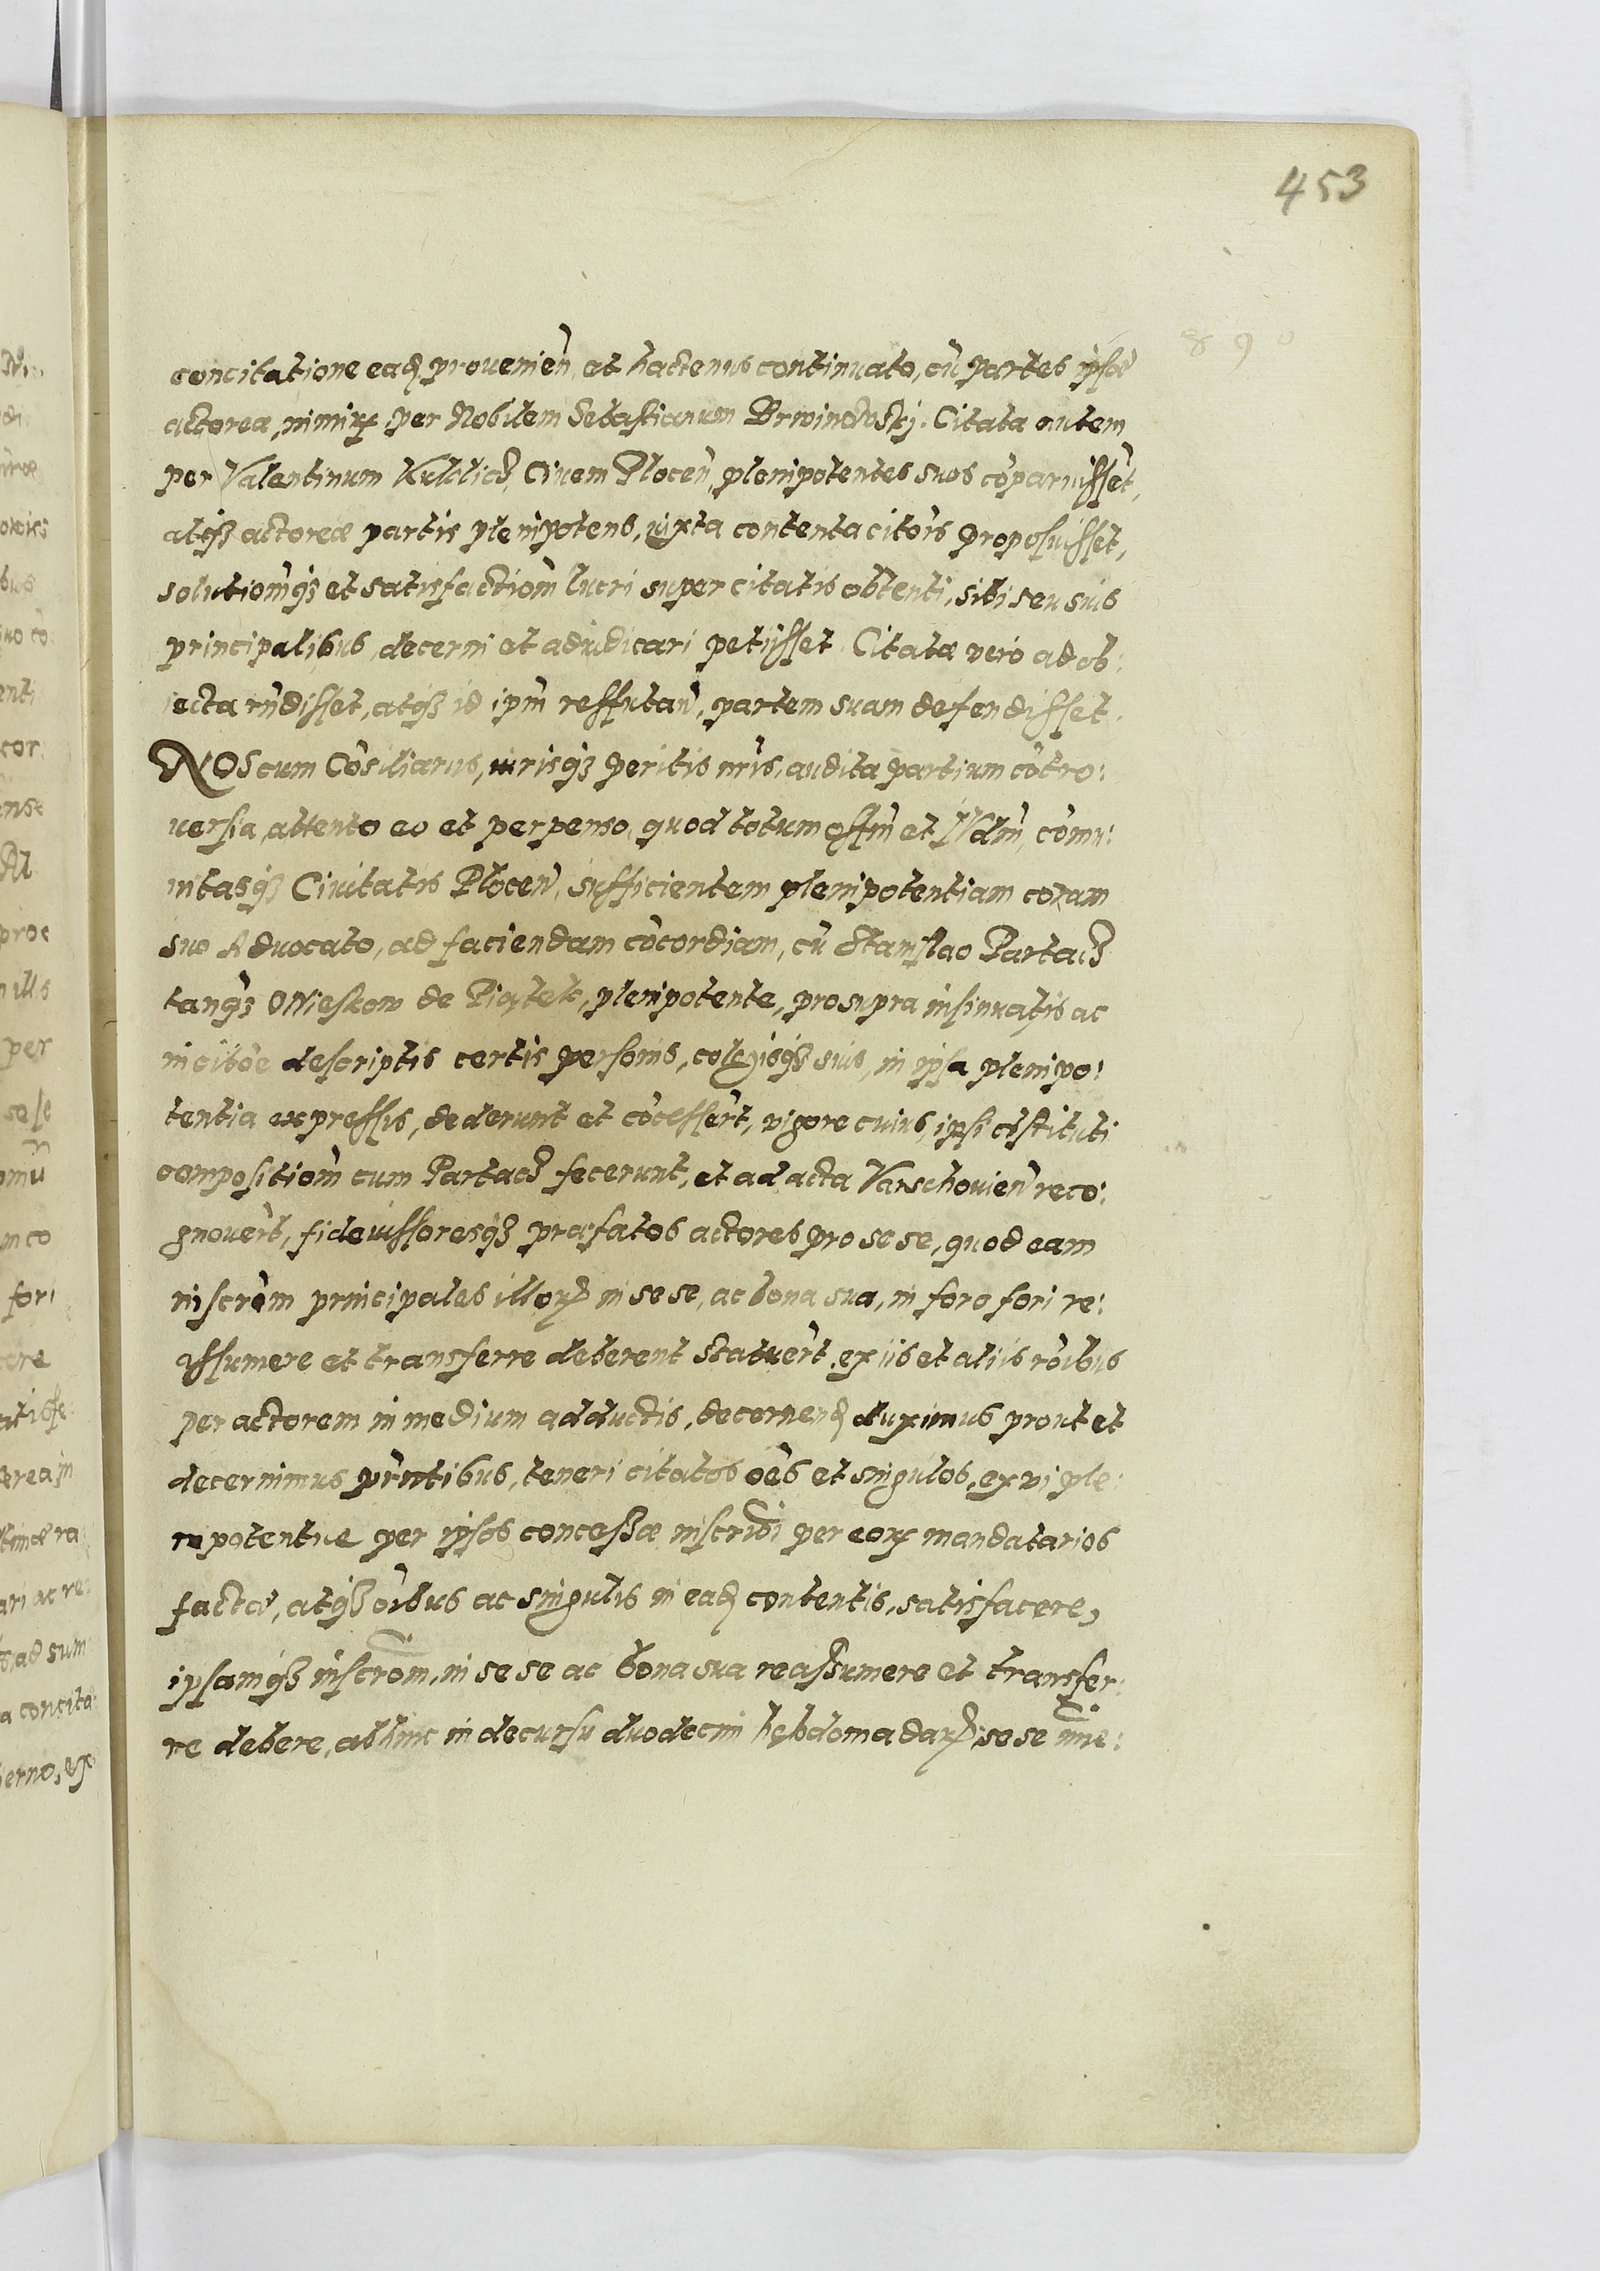 453
concitatione eadꝫ prouenieñ et hactenus continuato, cũ partes ipsæ
actorea, nimirꝝ per Nobilem Sebastianum Brwinowskj. Citata autem
per Valentinum Kulclich, Ciuem Plocen̄, plenipotentes suos cõparuissẽt,
atqꝫ actoreæ partis plenipotens, iuxta contenta citõis proposuisset,
solutiom̃qꝫ et satisfactiom̃ lucri super citatis obtenti, sibi seu suis
principalibus decerni et adiudicari petijsset. Citatæ vero ad ob:
iecta rñdisset, atqꝫ id ip̃m reffutañ, partem suam defendisset.
NOS cum Cõsiliarijs, iurisqꝫ peritis nr̃is, audita partium cõtro:
uersia, attento eo et perpenso, quod totum offm̃ et Adm̃, com̃u:
nitasqꝫ Ciuitatis Plocen̄, sufficientem plenipotentiam coram
suo Aduocato, ad faciendam cõcordiam, cũ Stanislao Partach
tanqꝫ Wieskow de Piątek, plenipotente, pro supra insinuatis ac
in citõe descriptis certis personis, colegisqꝫ suis, in ipsa plenipo:
tentia expressis, dederunt et cõcessẽrt, vigore cuius, ipsi cõstituti
compositiom̃ cum Partach fecerunt, et ad acta Varschouien̄ reco:
gnouẽrt, fideiussoresqꝫ præfatos actores pro se se, quod eam
inscrõm principales illorꝝ in se se, ac bona sua, in foro fori re:
assumere et transferre deberent statuẽrt, ex iis et aliis rõibus
per actorem in medium adductis, decernendꝫ duximus prout et
decernimus pr̃ntibus, teneri citatos oẽs et singulos, ex vi ple:
nipotentiæ per ipsos concessæ inscrõi per eorꝝ mandatarios
factæ, atqꝫ oĩbus ac singulis in eadꝫ contentis, satisfacere,
ipsamqꝫ inscrõm, in se se ac bona sua reassumere et transfer:
re debere, ab hinc in decursu duodecim hebdomadarꝝ, se se